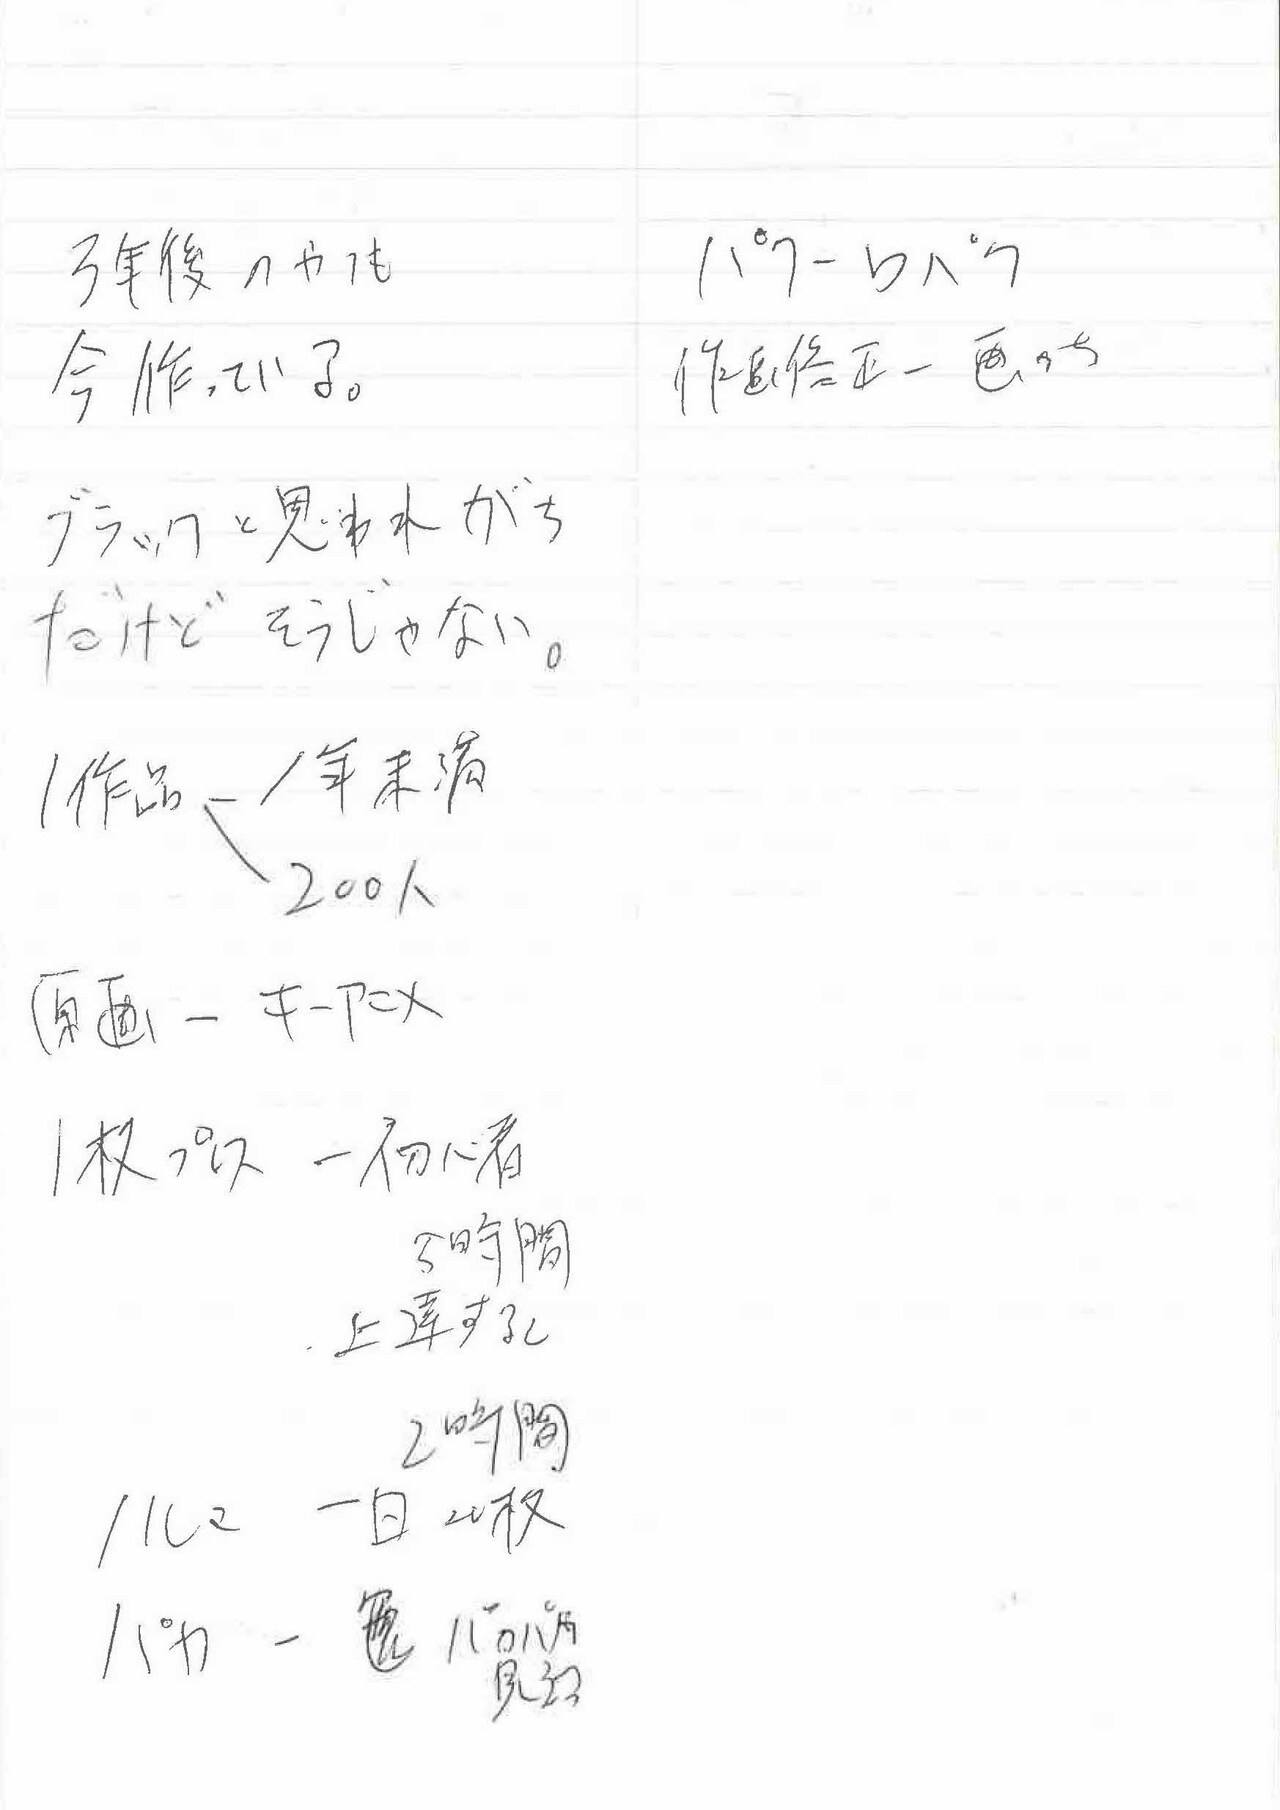 3年後のやつも
今作っている。
ブラックと思われがち
だけど そうじゃない。
1作品 - 1年未満
200人
原画 - キーアニメ
1枚プロス - 初心者
5時間
上達すると
2時間
ノルマ 一日 20枚
パカ - パカパカ
見える
パクー口パク
作画修正 -